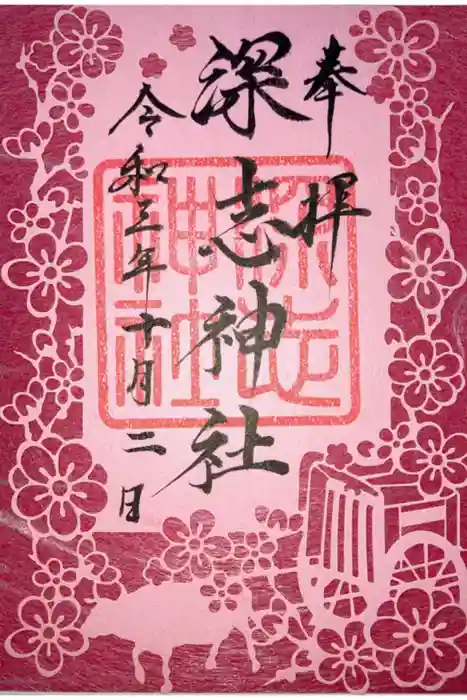 奉拝
深志神社
令和三年十月二日
深志
神社